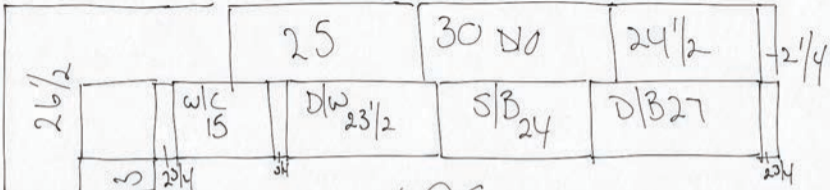 25 30 DO 24 1/2 2 1/4
26 1/2
W/C 15
D/W 23 1/2
S/B 24
D/B 27
3 2 3/4 3/4 2 3/4